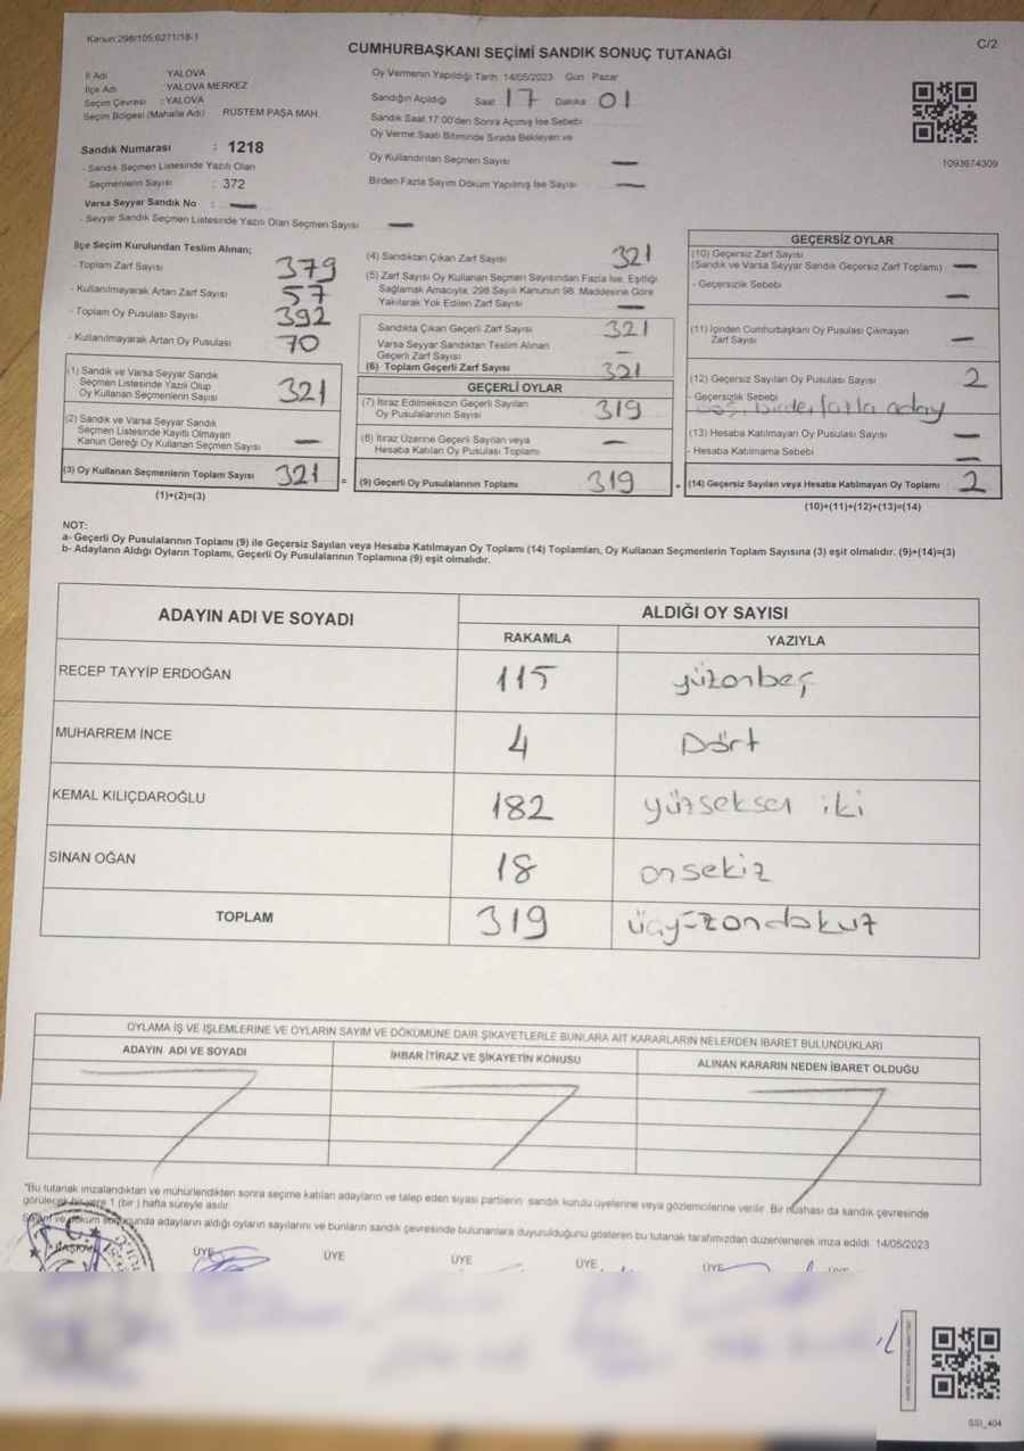 Kanun:298/105;6271/18-1
C/2
CUMHURBAŞKANI SEÇİMİ SANDIK SONUÇ TUTANAĞI
İl Adı YALOVA
İlçe Adı YALOVA MERKEZ
Seçim Çevresi : YALOVA
Seçim Bölgesi (Mahalle Adı) RÜSTEM PAŞA MAH.
Sandık Numarası : 1218
- Sandık Seçmen Listesinde Yazılı Olan
Seçmenlerin Sayısı : 372
Varsa Seyyar Sandık No : —
- Seyyar Sandık Seçmen Listesinde Yazılı Olan Seçmen Sayısı —
Oy Vermenin Yapıldığı Tarih: 14/05/2023 Gün: Pazar
Sandığın Açıldığı Saat 17 Dakika 01
Sandık Saat 17:00'den Sonra Açılmış İse Sebebi
Oy Verme Saati Bitiminde Sırada Bekleyen ve
Oy Kullandırılan Seçmen Sayısı —
Birden Fazla Sayım Döküm Yapılmış İse Sayısı —
1093674309
İlçe Seçim Kurulundan Teslim Alınan;
- Toplam Zarf Sayısı 379
- Kullanılmayarak Artan Zarf Sayısı 57
- Toplam Oy Pusulası Sayısı 392
- Kullanılmayarak Artan Oy Pusulası 70
(1) Sandık ve Varsa Seyyar Sandık
Seçmen Listesinde Yazılı Olup
Oy Kullanan Seçmenlerin Sayısı 321
(2) Sandık ve Varsa Seyyar Sandık
Seçmen Listesinde Kayıtlı Olmayan
Kanun Gereği Oy Kullanan Seçmen Sayısı —
(3) Oy Kullanan Seçmenlerin Toplam Sayısı 321
(1)+(2)=(3)
(4) Sandıktan Çıkan Zarf Sayısı 321
(5) Zarf Sayısı Oy Kullanan Seçmen Sayısından Fazla İse, Eşitliği
Sağlamak Amacıyla, 298 Sayılı Kanunun 98. Maddesine Göre
Yakılarak Yok Edilen Zarf Sayısı —
Sandıkta Çıkan Geçerli Zarf Sayısı 321
Varsa Seyyar Sandıktan Teslim Alınan
Geçerli Zarf Sayısı —
(6) Toplam Geçerli Zarf Sayısı 321
GEÇERLİ OYLAR
(7) İtiraz Edilmeksizin Geçerli Sayılan
Oy Pusulalarının Sayısı 319
(8) İtiraz Üzerine Geçerli Sayılan veya
Hesaba Katılan Oy Pusulası Toplamı —
= (9) Geçerli Oy Pusulalarının Toplamı 319
GEÇERSİZ OYLAR
(10) Geçersiz Zarf Sayısı
(Sandık ve Varsa Seyyar Sandık Geçersiz Zarf Toplamı) —
- Geçersizlik Sebebi —
(11) İçinden Cumhurbaşkanı Oy Pusulası Çıkmayan
Zarf Sayısı —
(12) Geçersiz Sayılan Oy Pusulası Sayısı 2
- Geçersizlik Sebebi
boş, birden fazla aday
(13) Hesaba Katılmayan Oy Pusulası Sayısı —
- Hesaba Katılmama Sebebi —
+ (14) Geçersiz Sayılan veya Hesaba Katılmayan Oy Toplamı 2
(10)+(11)+(12)+(13)=(14)
NOT:
a- Geçerli Oy Pusulalarının Toplamı (9) ile Geçersiz Sayılan veya Hesaba Katılmayan Oy Toplamı (14) Toplamları, Oy Kullanan Seçmenlerin Toplam Sayısına (3) eşit olmalıdır. (9)+(14)=(3)
b- Adayların Aldığı Oyların Toplamı, Geçerli Oy Pusulalarının Toplamına (9) eşit olmalıdır.
ADAYIN ADI VE SOYADI ALDIĞI OY SAYISI
RAKAMLA YAZIYLA
RECEP TAYYİP ERDOĞAN 115 yüzonbeş
MUHARREM İNCE 4 Dört
KEMAL KILIÇDAROĞLU 182 yüzseksen iki
SİNAN OĞAN 18 onsekiz
TOPLAM 319 üçyüzondokuz
OYLAMA İŞ VE İŞLEMLERİNE VE OYLARIN SAYIM VE DÖKÜMÜNE DAİR ŞİKAYETLERLE BUNLARA AİT KARARLARIN NELERDEN İBARET BULUNDUKLARI
ADAYIN ADI VE SOYADI İHBAR İTİRAZ VE ŞİKAYETİN KONUSU ALINAN KARARIN NEDEN İBARET OLDUĞU
"Bu tutanak imzalandıktan ve mühürlendikten sonra seçime katılan adayların ve talep eden siyasi partilerin sandık kurulu üyelerine veya gözlemcilerine verilir. Bir nüshası da sandık çevresinde
görülecek bir yere 1 (bir) hafta süreyle asılır.
Sayım ve döküm sonucunda adayların aldığı oyların sayılarını ve bunların sandık çevresinde bulunanlara duyurulduğunu gösteren bu tutanak tarafımızdan düzenlenerek imza edildi. 14/05/2023
BAŞKAN ÜYE ÜYE ÜYE ÜYE ÜYE
SSI_404